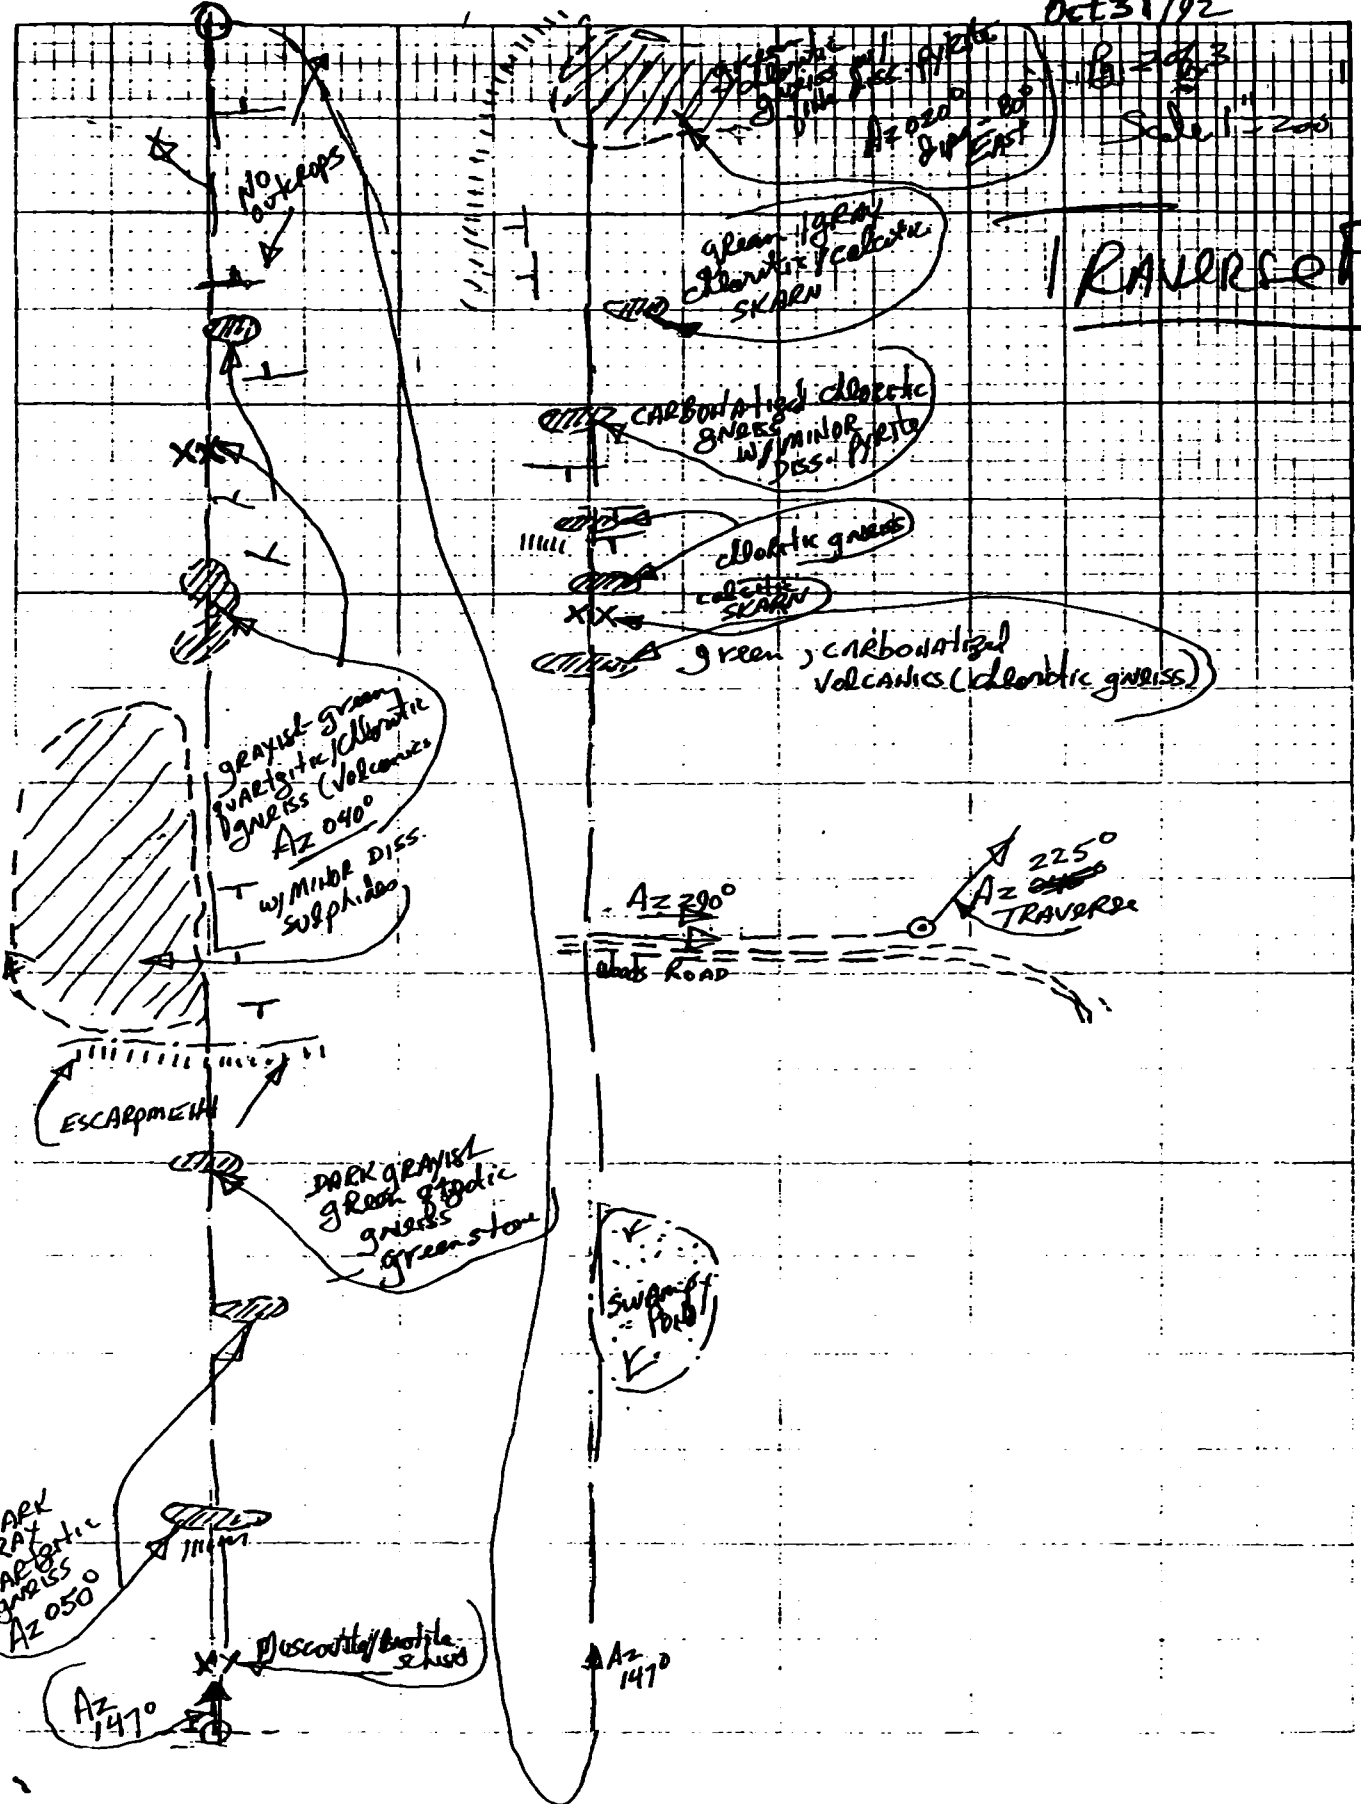 Oct 31/92
Pg 2 of 3
Scale 1" = 200'
TRAVERSE
green
chloritic
gneiss w/
fine diss. pyrite
Az 020°
dips - 80°
EAST
NO
OUTCROPS
green/gray
chloritic/calcitic
SKARN
CARBONATIZED chloritic
gneiss
w/ MINOR
DISS. PYRITE
chloritic gneiss
calcitic
SKARN
green, CARBONATIZED
VOLCANICS (chloritic gneiss)
GRAYISH-green
QUARTZITIC/chloritic
gneiss (Volcanics
Az 040°
w/ MINOR DISS.
sulphides)
Az 290°
Woods ROAD
225°
Az
TRAVERSE
ESCARPMENT
DARK GRAYISH
green
gneiss
greenstone
SWAMP/
POND
DARK
GRAY
QUARTZITIC
gneiss
Az 050°
Muscovite/Biotite
schist
Az
147°
Az
147°